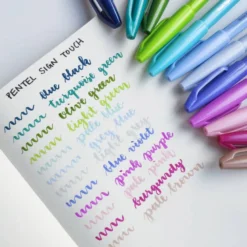 PENTEL SIGN TOUCH
blue black
turquoise green
olive green
light green
pale blue
gray blue
blue violet
pink purple
pale pink
burgundy
pale brown